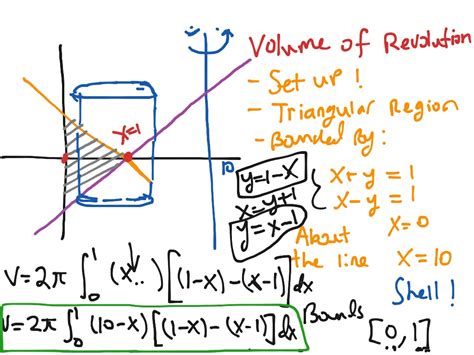 Volume of Revolution
- Set up!
- Triangular Region
- Bounded By:
x+y=1
x-y=1
x=0
About the line x=10
Shell!
x=1
10
y=1-x
x=y+1
y=x-1
V=2π∫₀¹(x...)[(1-x)-(x-1)]dx
V=2π∫₀¹(10-x)[(1-x)-(x-1)]dx
Bounds
[0,1]